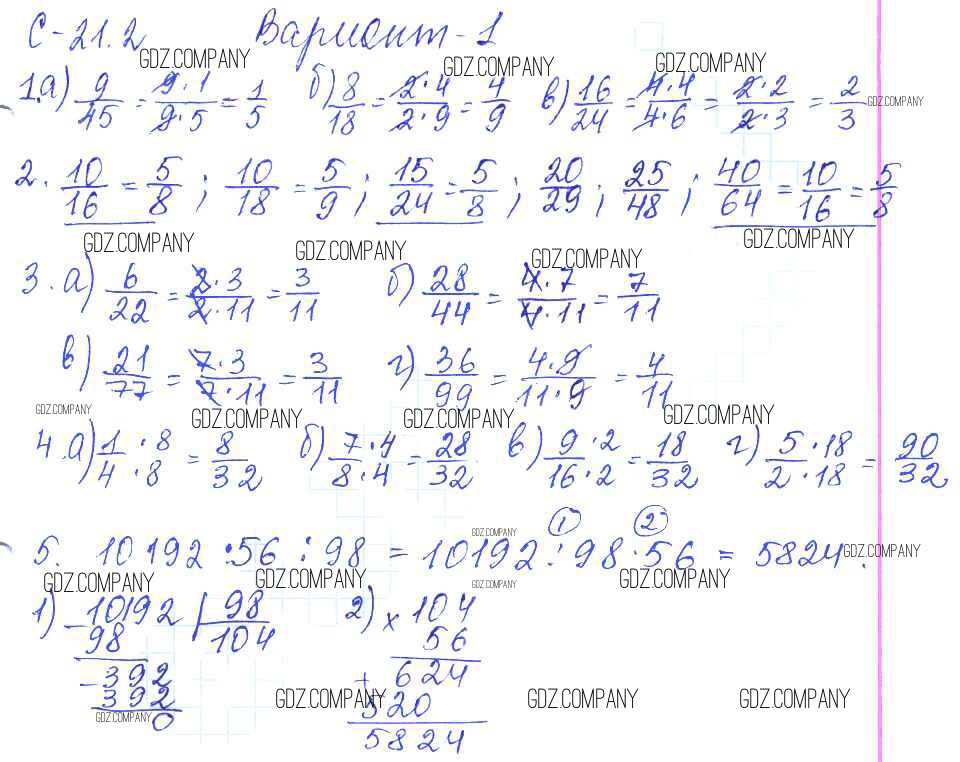 С-21.2 Вариант-1
GDZ.COMPANY GDZ.COMPANY GDZ.COMPANY
1.а) 9/45 = 9·1/9·5 = 1/5 б) 8/18 = 2·4/2·9 = 4/9 в) 16/24 = 4·4/4·6 = 2·2/2·3 = 2/3 GDZ.COMPANY
2. 10/16 = 5/8 ; 10/18 = 5/9 ; 15/24 = 5/8 ; 20/29 ; 25/48 ; 40/64 = 10/16 = 5/8
GDZ.COMPANY GDZ.COMPANY GDZ.COMPANY GDZ.COMPANY
3. а) 6/22 = 2·3/2·11 = 3/11 б) 28/44 = 4·7/4·11 = 7/11
в) 21/77 = 7·3/7·11 = 3/11 г) 36/99 = 4·9/11·9 = 4/11
GDZ.COMPANY GDZ.COMPANY GDZ.COMPANY GDZ.COMPANY
4.а) 1·8/4·8 = 8/32 б) 7·4/8·4 = 28/32 в) 9·2/16·2 = 18/32 г) 5·18/2·18 = 90/32
GDZ.COMPANY 1 2
5. 10192 · 56 : 98 = 10192 : 98 · 56 = 5824. GDZ.COMPANY
GDZ.COMPANY GDZ.COMPANY GDZ.COMPANY GDZ.COMPANY
1) -10192 | 98 2) × 104
98 104 56
-392 + 624
392 520
GDZ.COMPANY GDZ.COMPANY GDZ.COMPANY GDZ.COMPANY
0 5824